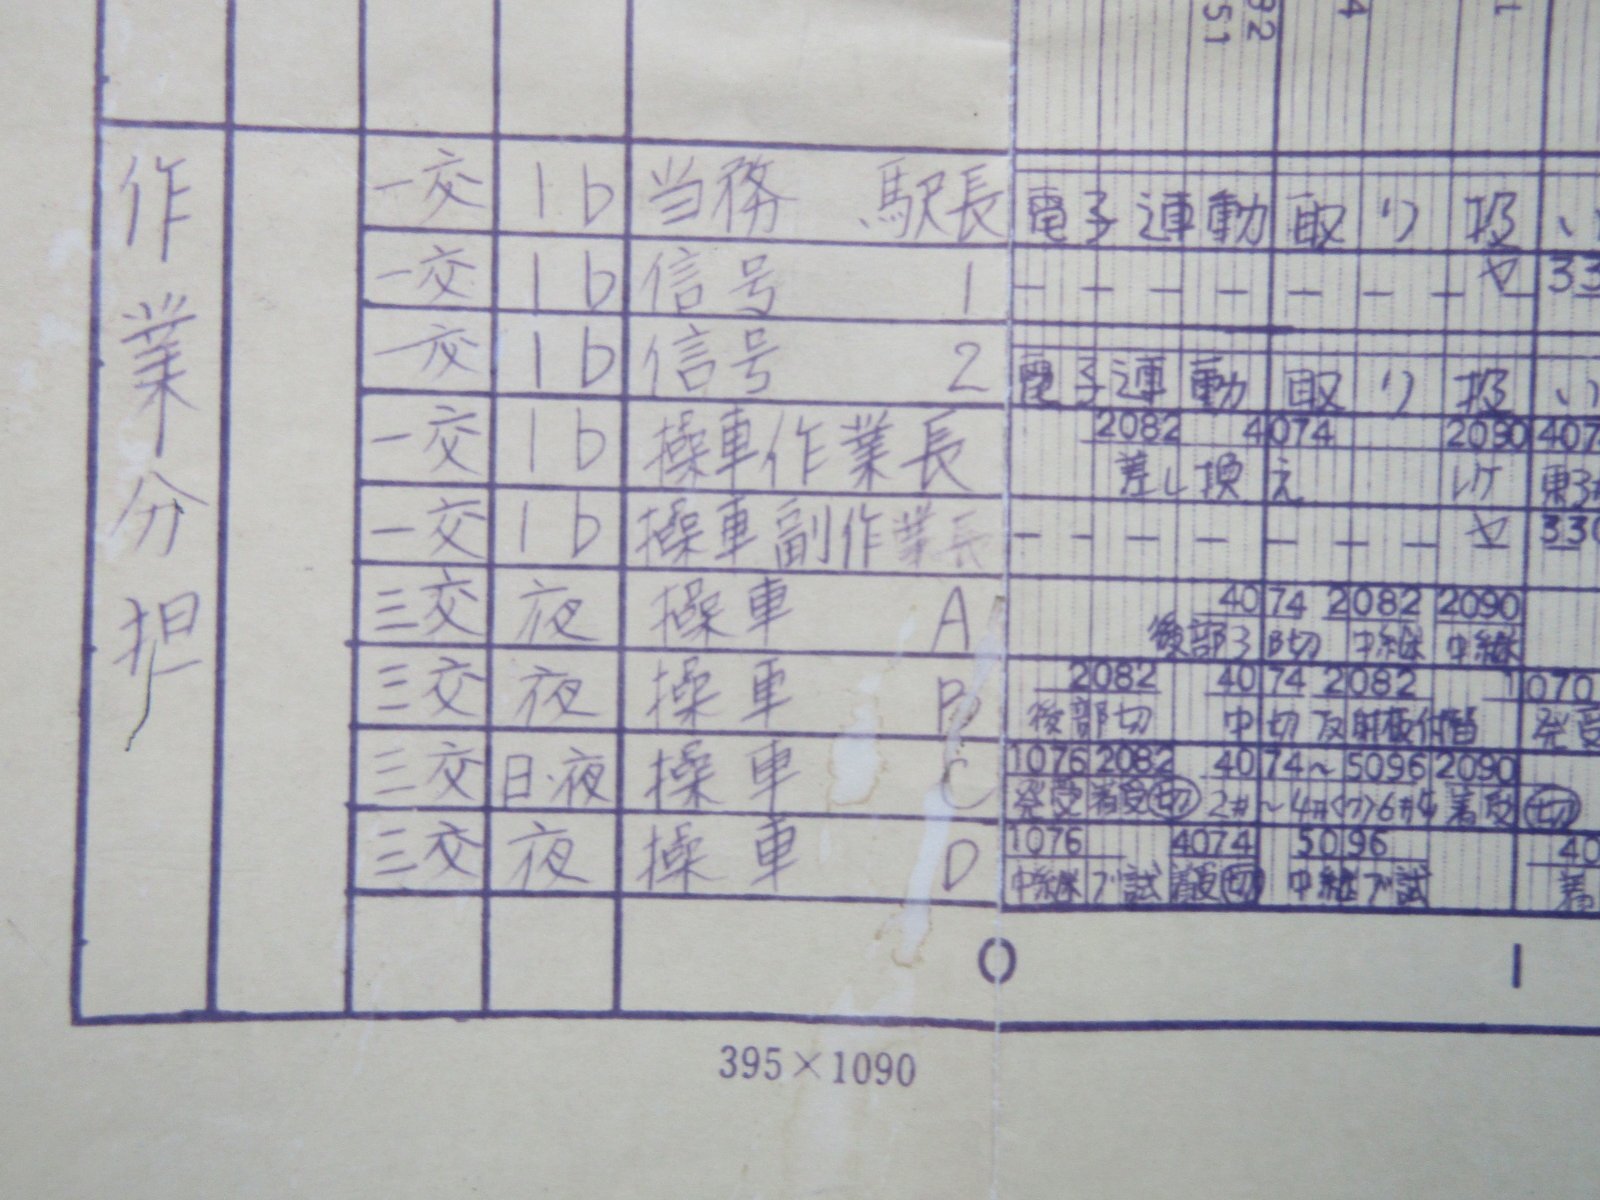 32
51
4
1
作業分担
一交 1b 当務 駅長 電子連動取り扱い
一交 1b 信号 1 や 33
一交 1b 信号 2 電子連動取り扱い
一交 1b 操車作業長 2082 4074 2090 407
差し換え
一交 1b 操車副作業長 や 330
三交 夜 操車 A 4074 2082 2090
中継 中継
三交 夜 操車 B 2082 4074 2082 1070
後部切 中切 発受
三交 日・夜 操車 C 1076 2082 4074~5096 2090
発受 着受切 着受切
三交 夜 操車 D 1076 4074 5096 40
中継ブ試 中継ブ試 着
0 1
395×1090